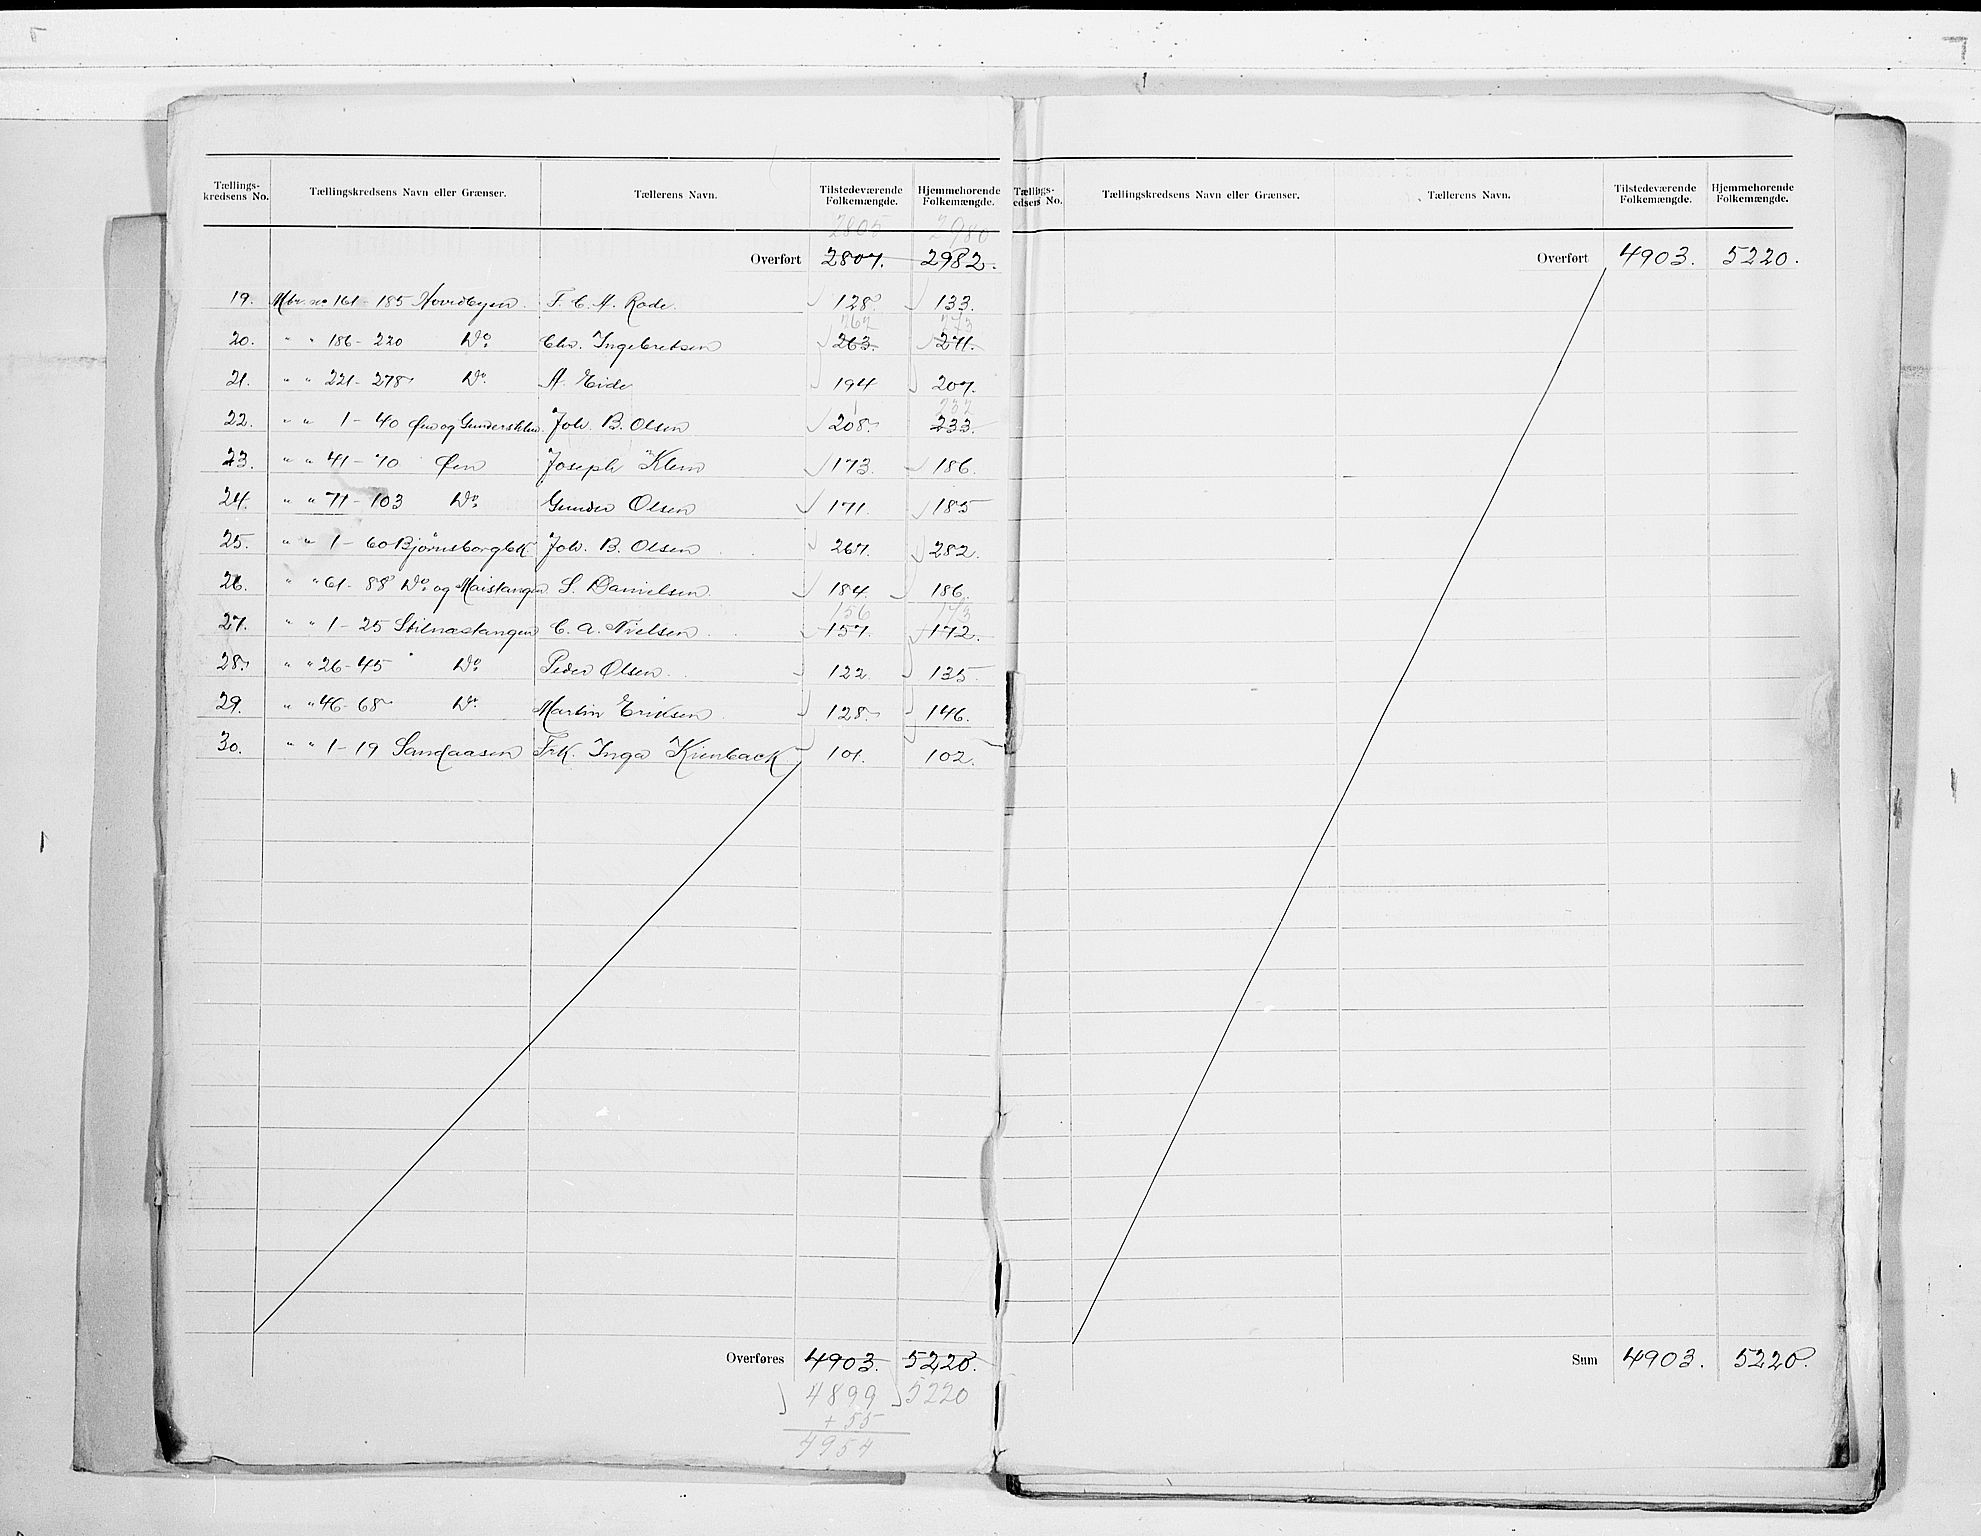 Tællings- kredsens No. Tællingskredsens Navn eller Grænser. Tællerens Navn. Tilstedeværende Folkemængde. Hjemmehørende Folkemængde.
2805 2980
Overført 2807. 2982.
19. Mtr. no 161 - 185 Hovedbyen. F. C. A. Rode. 128. 133.
262 273
20. " " 186 - 220 Do. Chr. Ingebretsen 263. 271.
21. " " 221 - 278 Do. A. Eide 194 207.
232
22. " " 1 - 40 Øen og Gundersholm. Joh. B. Olsen 208. 233.
23. " " 41 - 70 Øen Joseph Klem 173. 186.
24. " " 71 - 103 Do. Gunder Olsen 171. 185
25. " " 1 - 60 Bjørnsborgbk. Joh. B. Olsen 267. 282.
26. " " 61 - 88 Do. og Maistangen S. Danielsen. 184. 186.
156 173
27. " " 1 - 25 Stilnæstangen C. A. Nielsen. 157. 172.
28. " " 26 - 45 Do. Peder Olsen. 122. 135.
29. " " 46 - 68 Do. Martin Eriksen 128. 146.
30. " " 1 - 19 Sandaasen Frk. Inga Kienback 101. 102.
Overføres 4903. 5220.
4899 5220
+ 55
4954
Tællings- kredsens No. Tællingskredsens Navn eller Grænser. Tællerens Navn. Tilstedeværende Folkemængde. Hjemmehørende Folkemængde.
Overført 4903. 5220.
Sum 4903. 5220.